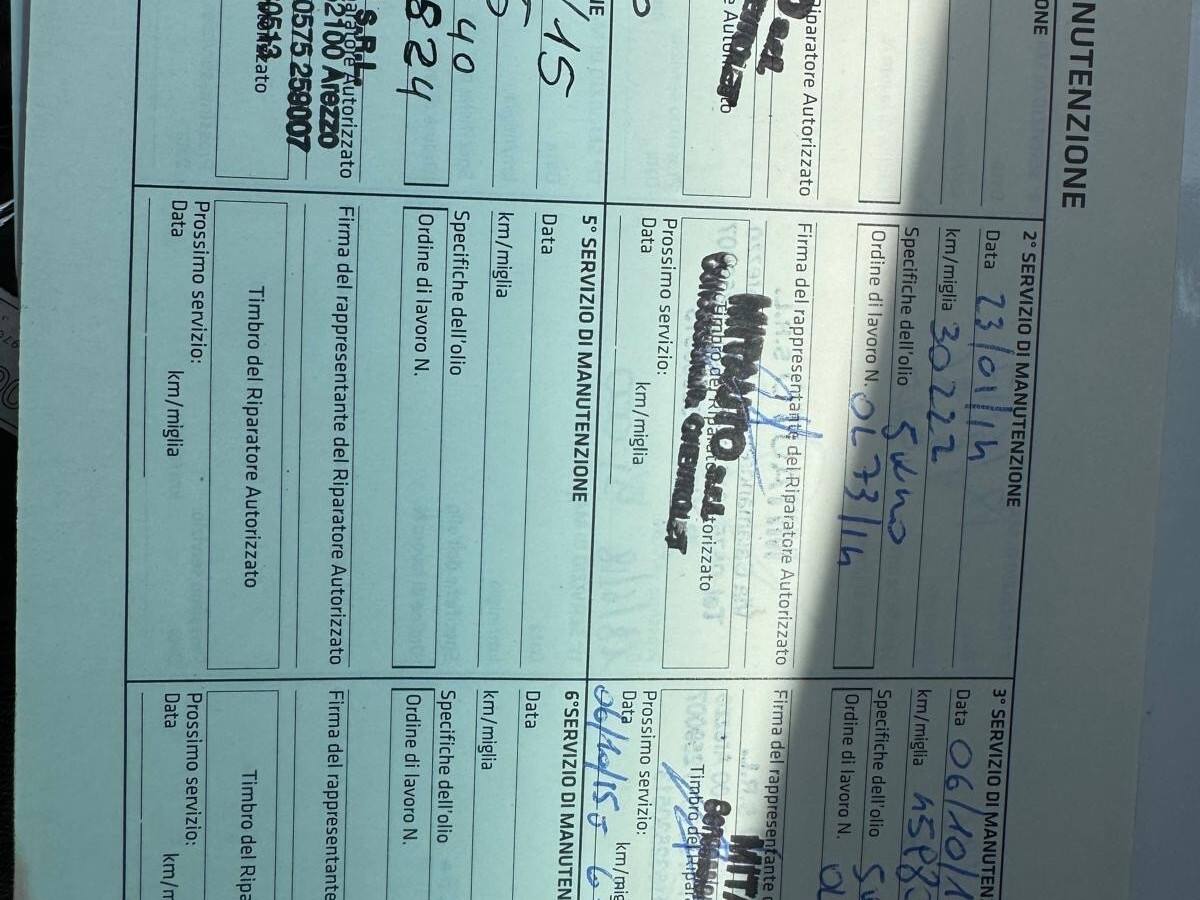 NUTENZIONE
IONE
Riparatore Autorizzato
2° SERVIZIO DI MANUTENZIONE
Data 23/01/14
km/miglia 30222
Specifiche dell'olio
Ordine di lavoro N. OL 73/14
Firma del rappresentante del Riparatore Autorizzato
MITAUTO s.r.l.
Timbro del Riparatore Autorizzato
CHEVROLET
Prossimo servizio:
Data km/miglia
3° SERVIZIO DI MANUTEN
Data 06/10/1
km/miglia
Specifiche dell'olio
Ordine di lavoro N. OL
Firma del rappresentante
MITA
Timbro del Ripar
Prossimo servizio:
Data km/mig
06/10/15
NE
/15
40
824
S.R.L.
paratore Autorizzato
52100 Arezzo
0575 259007
5° SERVIZIO DI MANUTENZIONE
Data
km/miglia
Specifiche dell'olio
Ordine di lavoro N.
Firma del rappresentante del Riparatore Autorizzato
Timbro del Riparatore Autorizzato
Prossimo servizio:
Data km/miglia
6° SERVIZIO DI MANUTEN
Data
km/miglia
Specifiche dell'olio
Ordine di lavoro N.
Firma del rappresentante
Timbro del Rip
Prossimo servizio:
Data km/m